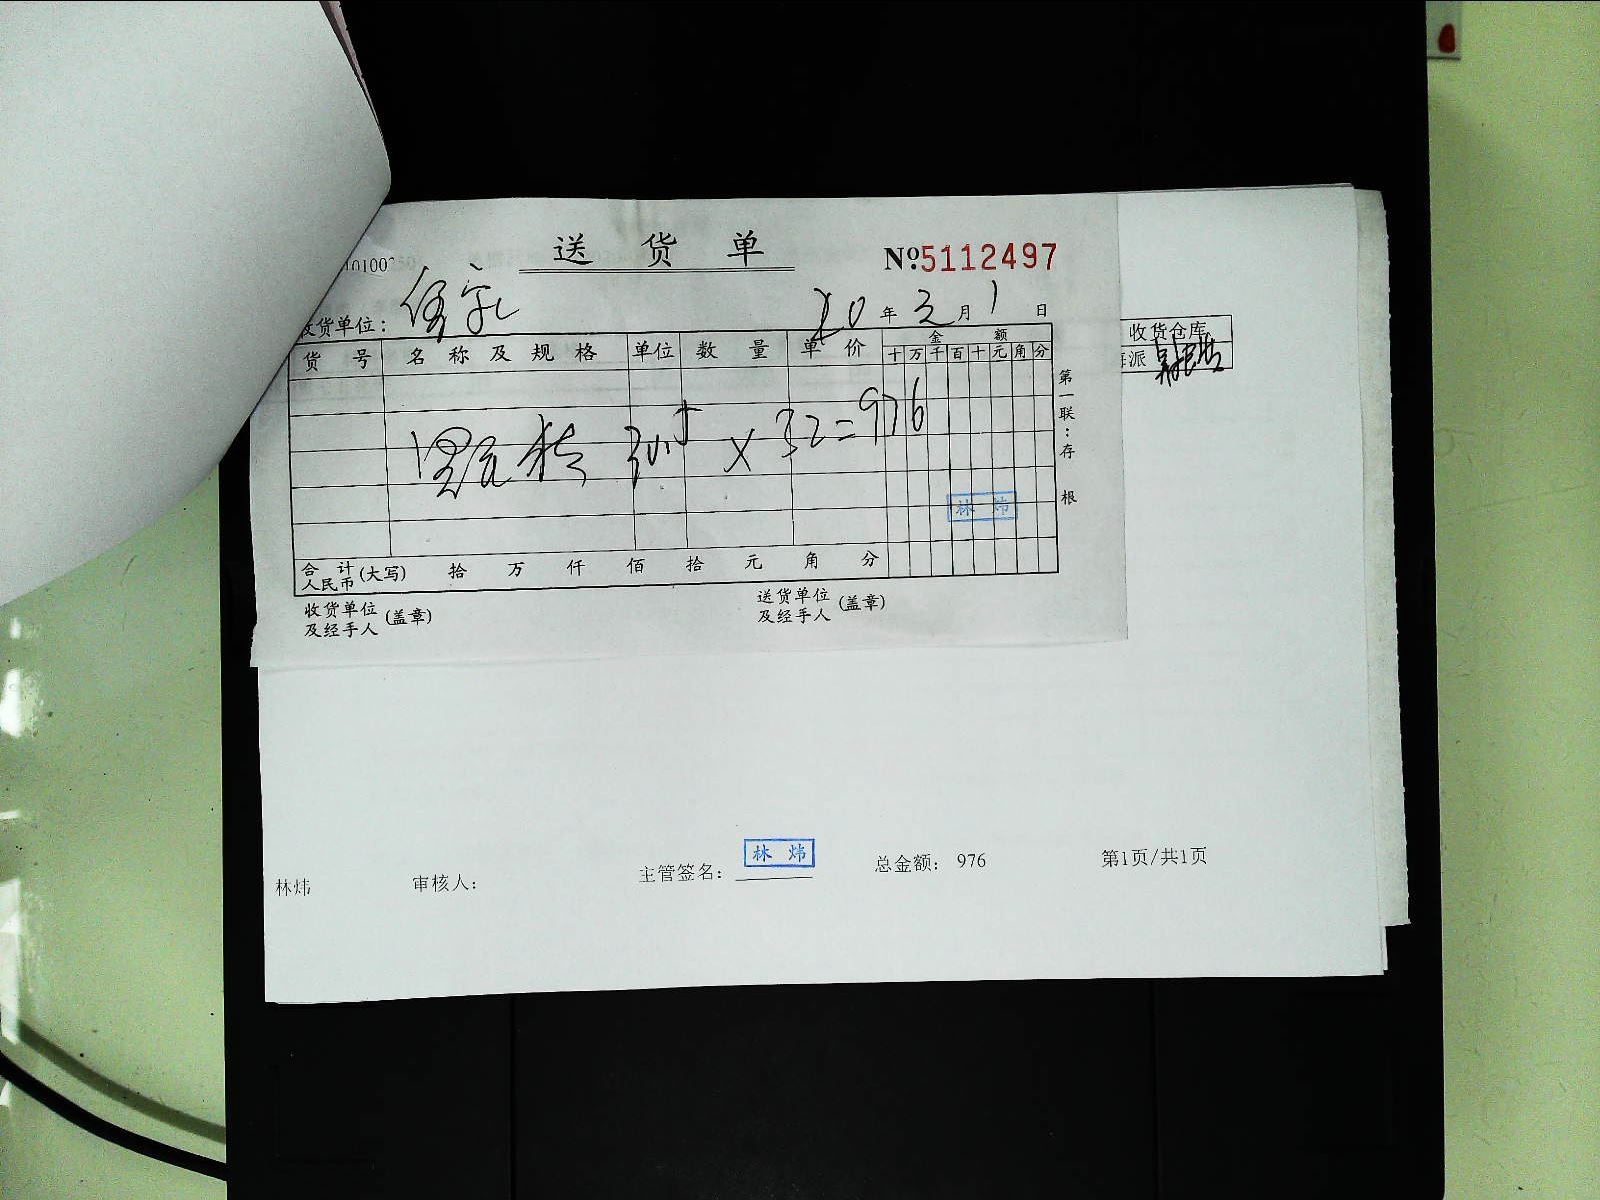 送货单
No5112497
收货单位：
20年 月1日
货号 名称及规格 单位 数量 单价 金额
十万千百十元角分
× 32=976
第一联：存根
林炜
合计
人民币(大写) 拾 万 仟 佰 拾 元 角 分
收货单位
及经手人(盖章)
送货单位
及经手人(盖章)
收货仓库
派
林炜
审核人：
主管签名：
林炜
总金额： 976
第1页/共1页